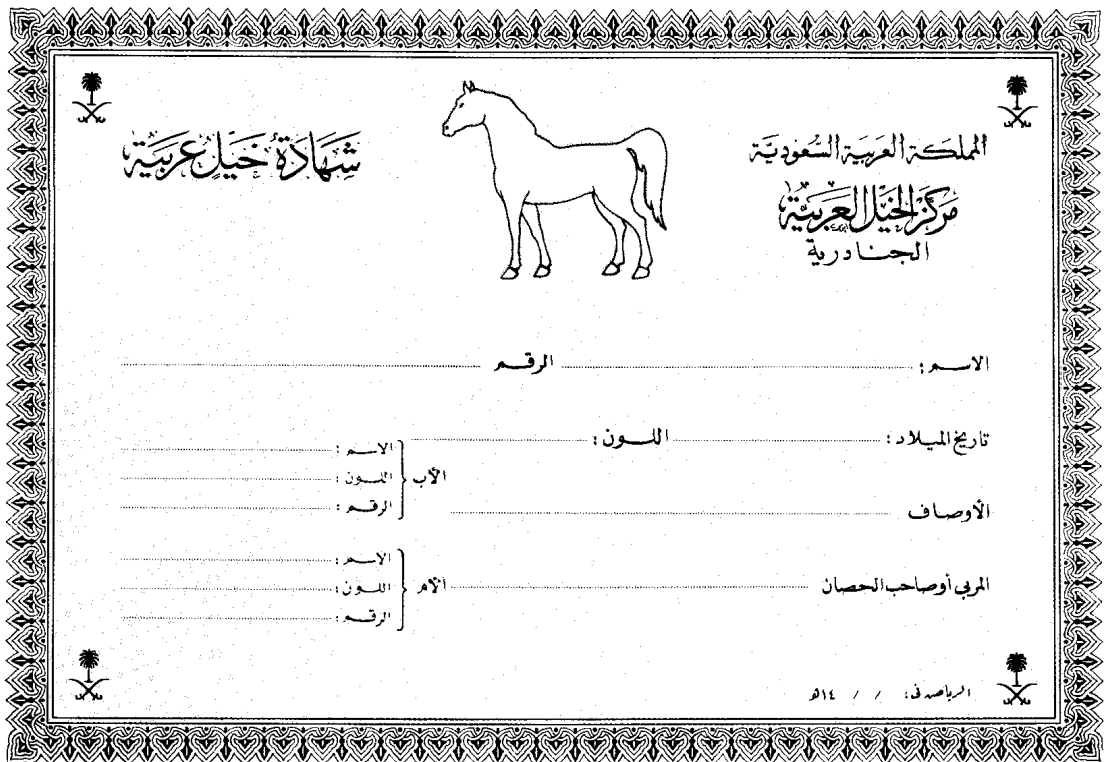 المملكة العربية السعودية
مركز الخيل العربية
الجنادرية
شهادة خيل عربية
الاسم: الرقم
تاريخ الميلاد: اللون:
الأب
الاسم:
اللون:
الرقم:
الأوصاف
المربي أو صاحب الحصان
الأم
الاسم:
اللون:
الرقم:
الرياض في: / / ١٤هـ